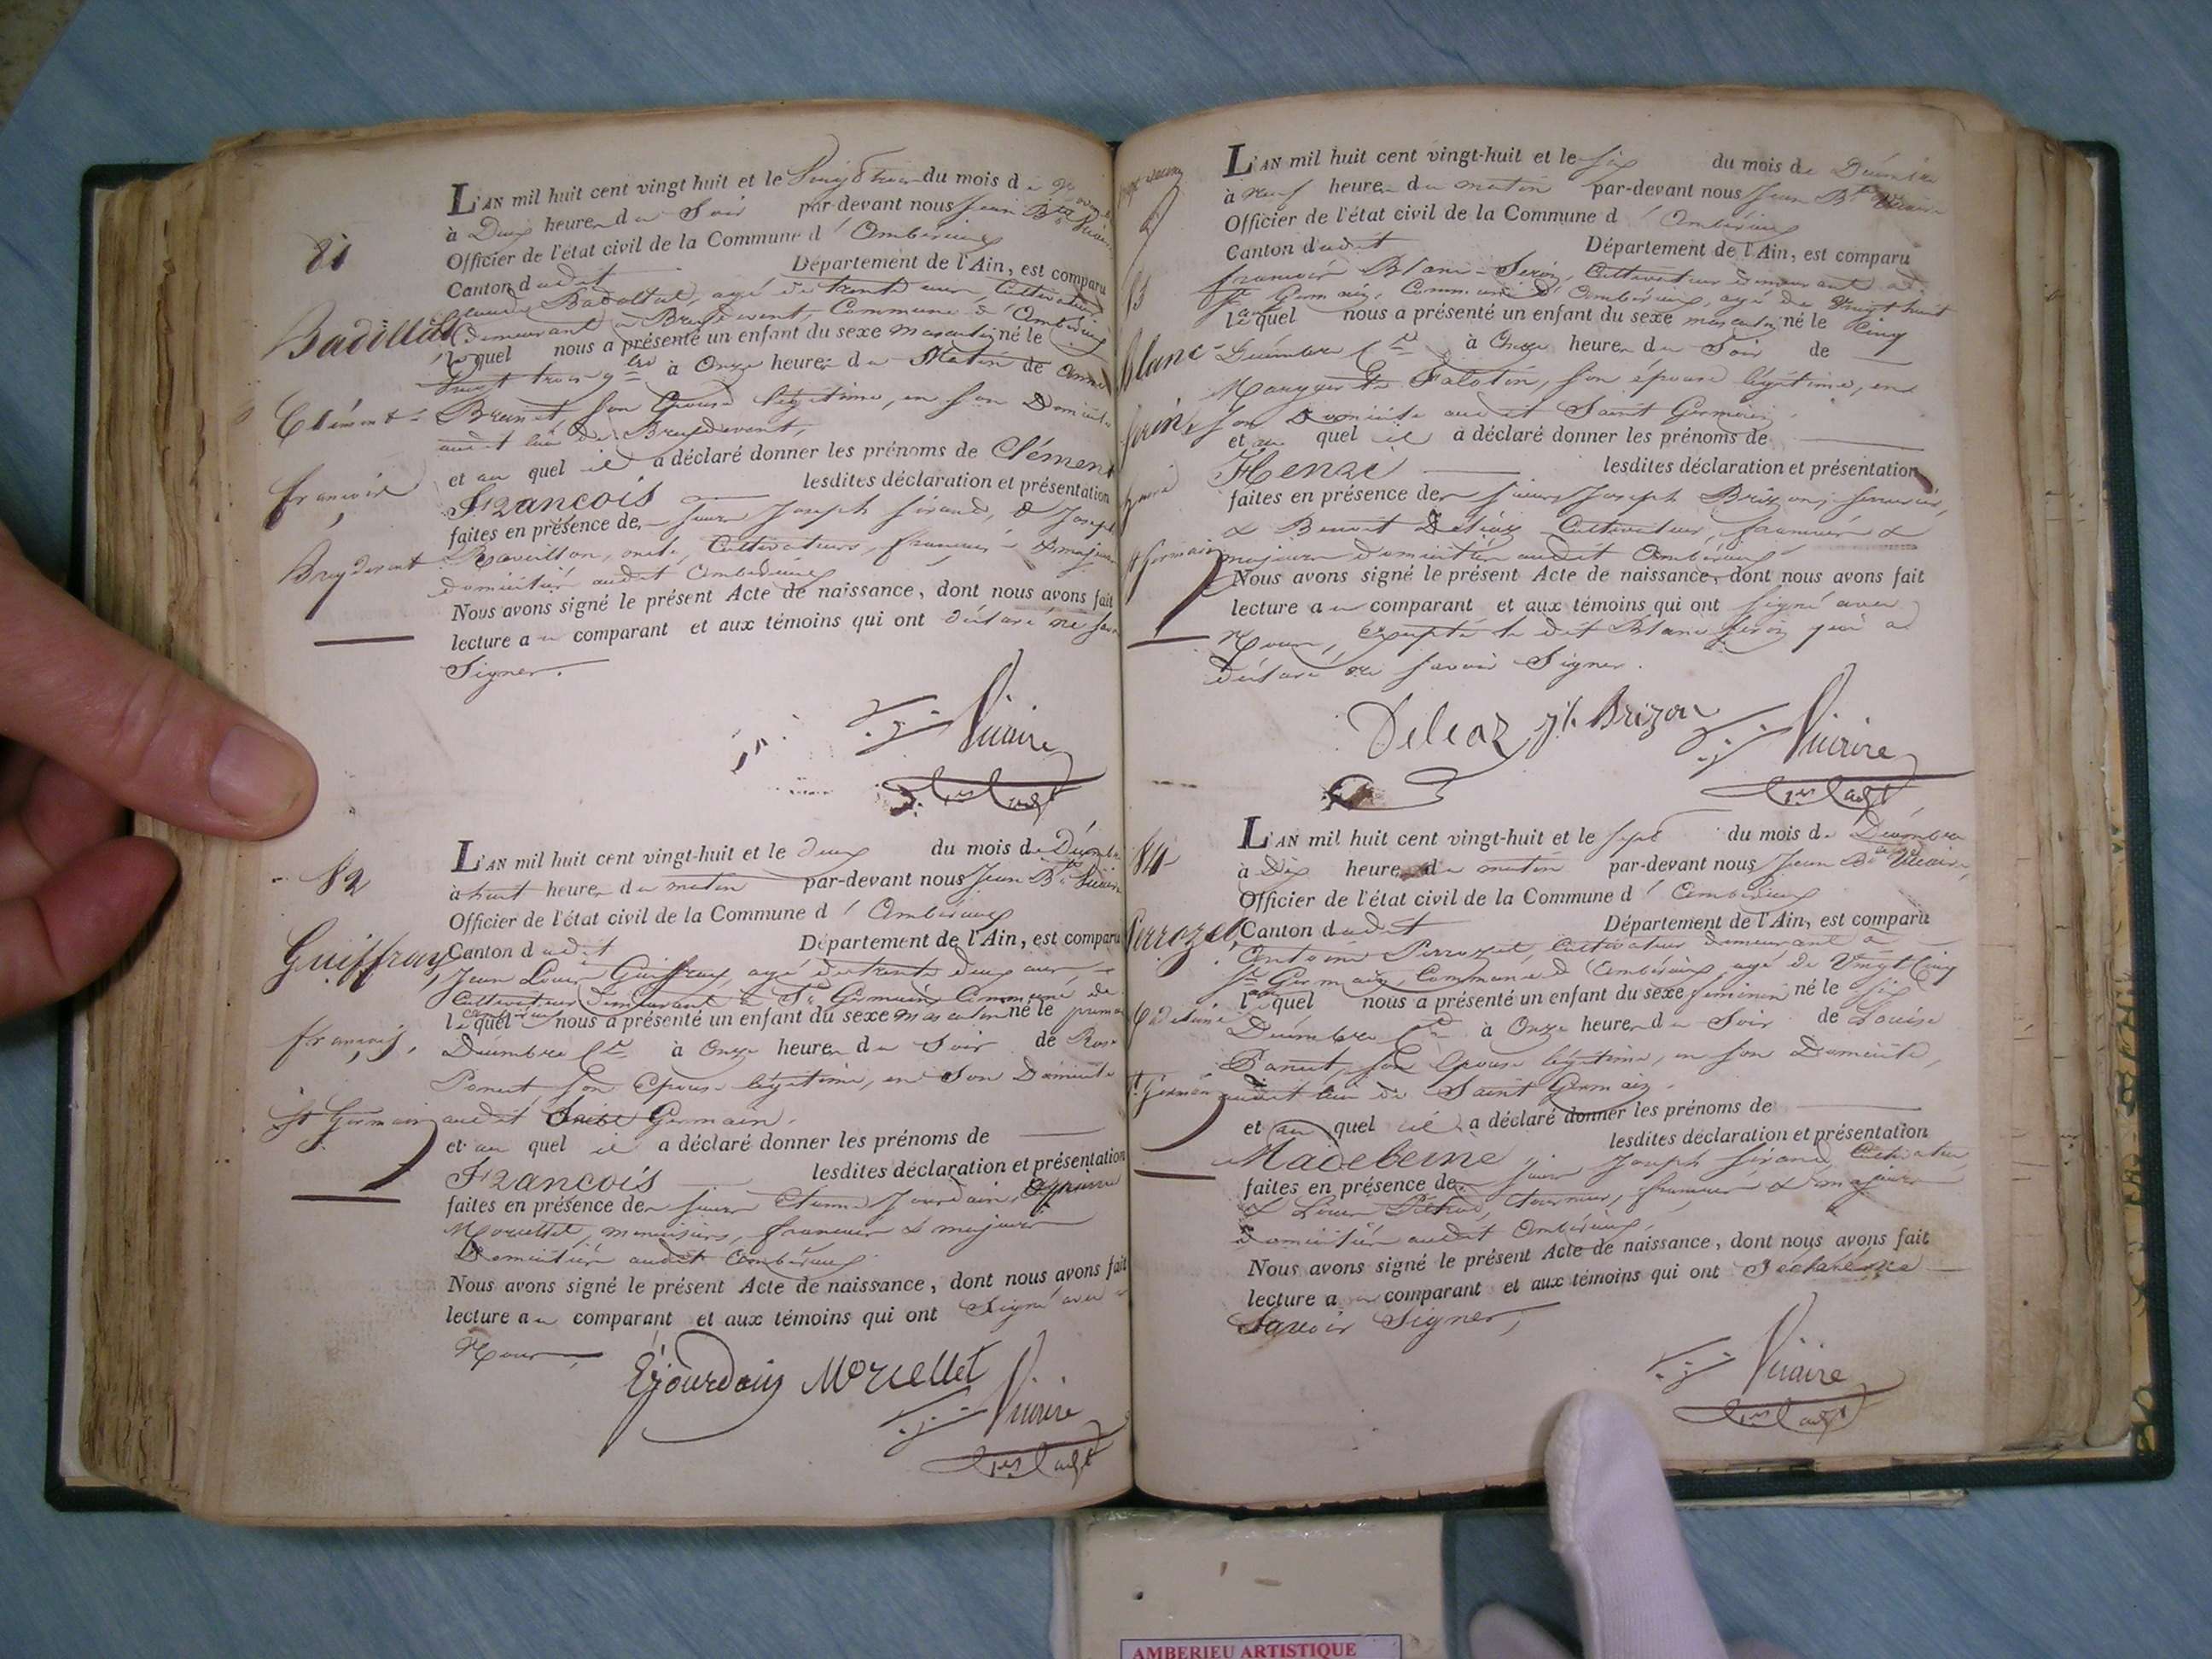 81
Badollat
Clément
françois
Breydevent
L'AN mil huit cent vingt huit et le Vingt trois du mois de
à Deux heures du Soir par-devant nous Jean Bte Vicaire
Officier de l'état civil de la Commune d'Ambérieux
Canton dudit Département de l'Ain, est comparu
Claude Badollat, agé de trente ans, Cultivateur
demeurant à Breydevent, Commune d'Ambérieux
lequel nous a présenté un enfant du sexe masculin né le
Vingt trois 9bre à Onze heures du Matin de
Brunet, son Epouse légitime, en son Domicile
audit lieu de Breydevent,
et au quel il a déclaré donner les prénoms de Clément
François lesdites déclaration et présentation
faites en présence des sieurs Joseph Sirand, & Joseph
Ravillon, cultivateurs, français & majeurs
domiciliés audit Ambérieux
Nous avons signé le présent Acte de naissance, dont nous avons fait
lecture au comparant et aux témoins qui ont déclaré ne savoir
Signer.
Vicaire
82
Guiffray
françois,
St Germain
L'AN mil huit cent vingt-huit et le deux du mois de Décembre
à huit heures du matin par-devant nous Jean Bte Vicaire
Officier de l'état civil de la Commune d'Ambérieux
Canton dudit Département de l'Ain, est comparu
Jean Louis Guiffray, agé de trente deux ans
Cultivateur demeurant à St Germain Commune de
Ambérieux
lequel nous a présenté un enfant du sexe masculin né le premier
Décembre Ct à Onze heures du Soir de Rose
Panut son Epouse légitime, en son Domicile
audit Saint Germain.
et au quel il a déclaré donner les prénoms de
François lesdites déclaration et présentation
faites en présence des sieurs Etienne Jourdain,
Morellet, menuisiers, français & majeurs
Domiciliés audit Ambérieux
Nous avons signé le présent Acte de naissance, dont nous avons fait
lecture au comparant et aux témoins qui ont Signé avec
Nous,
Ejourdain Morellet Vicaire
83
Blanc
Serin,
henri
St Germain
L'AN mil huit cent vingt-huit et le six du mois de Décembre
à neuf heures du matin par-devant nous Jean Bte Vicaire
Officier de l'état civil de la Commune d'Ambérieux
Canton dudit Département de l'Ain, est comparu
françois Blanc-Serin, Cultivateur demeurant à
St Germain, Commune d'Ambérieux, agé de Vingt huit
ans
lequel nous a présenté un enfant du sexe masculin né le Cinq
Décembre Ct à Onze heures du Soir de
Marguerite Falotin, son épouse légitime, en
son Domicile audit Saint Germain.
et au quel il a déclaré donner les prénoms de
Henri lesdites déclaration et présentation
faites en présence des sieurs Joseph Brizon, serrurier,
& Benoit Deléaz Cultivateur, français &
majeurs domiciliés audit Ambérieux
Nous avons signé le présent Acte de naissance, dont nous avons fait
lecture au comparant et aux témoins qui ont signé avec
Nous, Excepté le dit Blanc Serin qui a
déclaré ne savoir Signer.
Deleaz jh Brizon Vicaire
84
Perrozet,
Madeleine
St Germain
L'AN mil huit cent vingt-huit et le sept du mois de Décembre
à Dix heures du matin par-devant nous Jean Bte Vicaire,
Officier de l'état civil de la Commune d'Ambérieux
Canton dudit Département de l'Ain, est comparu
Antoine Perrozet, Cultivateur demeurant à
St Germain, Commune d'Ambérieux, agé de Vingt Cinq
ans
lequel nous a présenté un enfant du sexe féminin né le six
Décembre Ct à Onze heures du Soir de Louise
Panut, son Epouse légitime, en son Domicile,
audit lieu de Saint Germain.
et au quel il a déclaré donner les prénoms de
Madeleine lesdites déclaration et présentation
faites en présence des sieurs Joseph Sirand, Cultivateur,
& Louis, tourneur, français & majeurs
domiciliés audit Ambérieux,
Nous avons signé le présent Acte de naissance, dont nous avons fait
lecture au comparant et aux témoins qui ont Déclaré ne
Savoir Signer,
Vicaire
AMBERIEU ARTISTIQUE